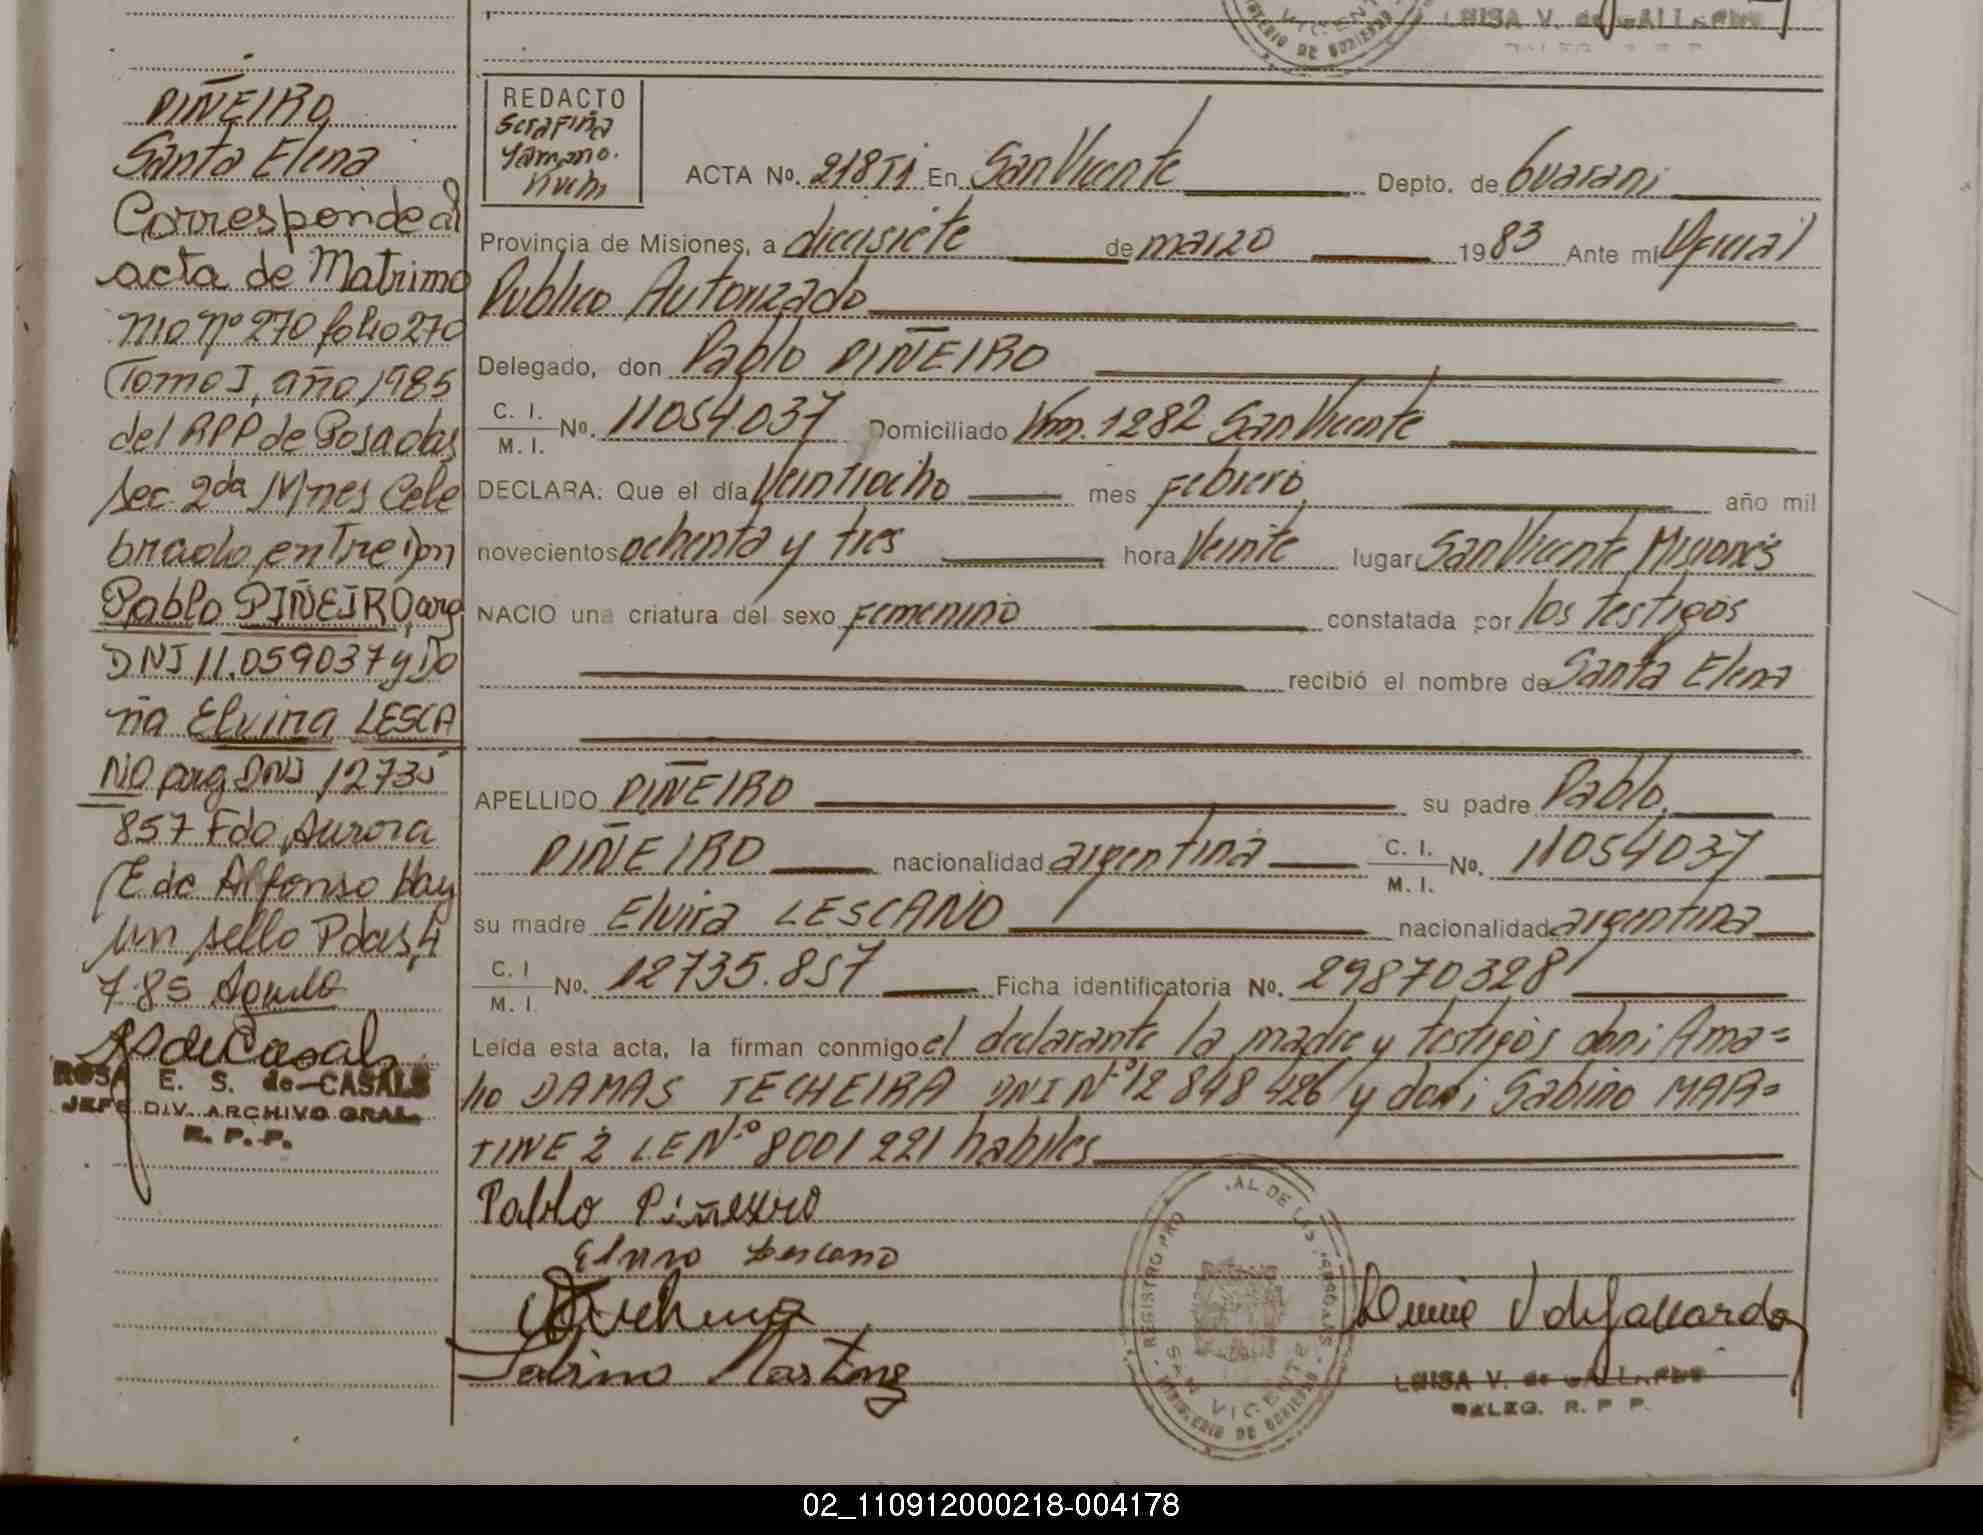 LUISA V. de GALLARDO
PIÑEIRO
Santa Elena
Corresponde al
acta de Matrimo
nio Nº 270 folio 270
Tomo I, año 1985
del RPP de Posadas
Sec 2da Mnes Cele
brado entre Don
Pablo PIÑEIRO, arg
DNI 11.059037 y Do
ña Elvira LESCA
NO arg DNI 12735
857 Fdo Aurora
E de Alfonso Hay
un sello Pdas, 4
7 85
ROSA E. S. de CASALS
JEFE DIV. ARCHIVO GRAL.
R. P. P.
REDACTO
Serafina
ACTA No. 218TI En San Vicente Depto. de Guarani
Provincia de Misiones, a diecisiete de marzo 1983 Ante mi Oficial
Publico Autorizado
Delegado, don Pablo PIÑEIRO
C. I. / M. I. No. 11054.037 Domiciliado Km. 1282 San Vicente
DECLARA: Que el día Veintiocho mes Febrero, año mil
novecientos ochenta y tres hora Veinte lugar San Vicente Misiones
NACIO una criatura del sexo Femenino constatada por los testigos
recibió el nombre de Santa Elena
APELLIDO PIÑEIRO su padre Pablo
PIÑEIRO nacionalidad argentina C. I. / M. I. No. 11054037
su madre Elvira LESCANO nacionalidad argentina
C. I / M. I. No. 12735.857 Ficha identificatoria No. 29870328
Leída esta acta, la firman conmigo el declarante la madre y testigos don: Ama=
lio DAMAS TECHEIRA DNI Nº 12 848 426 y don: Sabino MAR=
TINEZ LE Nº 8001 221 habiles
Pablo Piñeiro
Elvira Lescano
Sabino Martinez
REGISTRO PRO AL DE LAS PERSONAS
SAN VICENTE
MINISTERIO DE GOBIERNO
LUISA V. de GALLARDO
DELEG. R. P P.
02_110912000218-004178